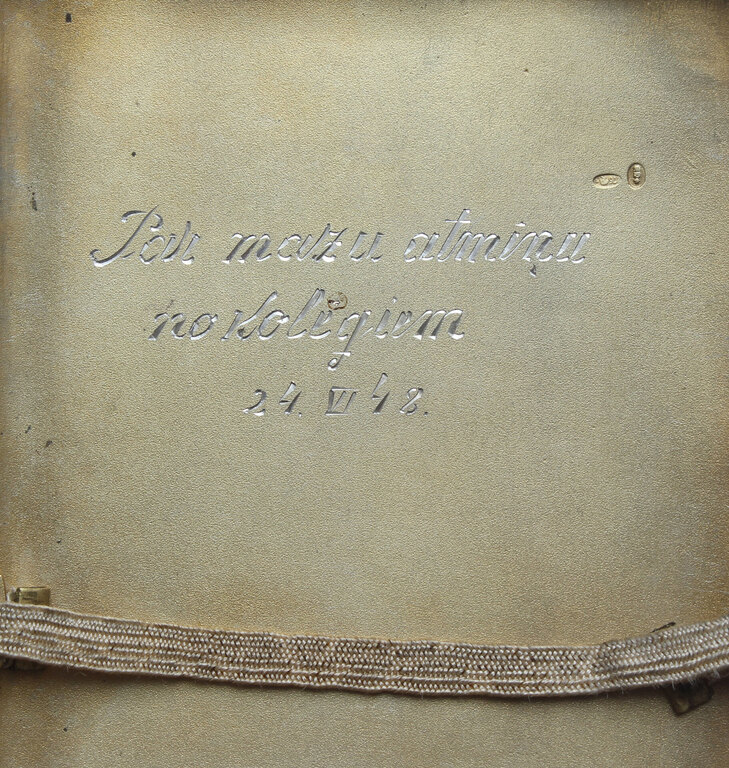 Par mazu atmiņu
no kolēģiem
24. VI 48.